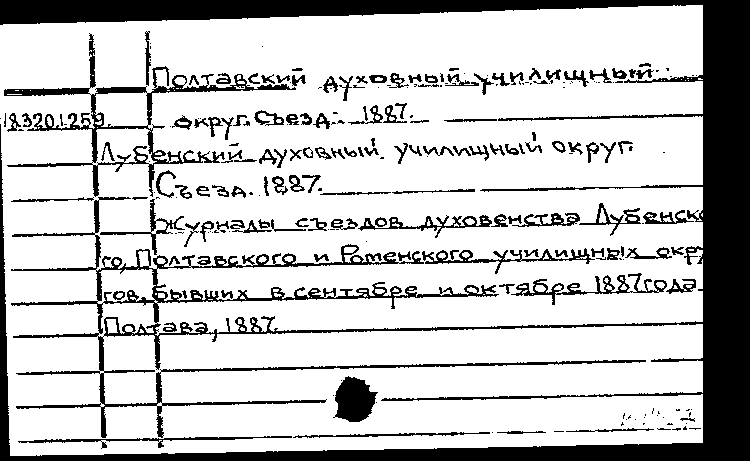 Полтавский духовный училищный
18320.1259. округ. Съезд. 1887.
Лубенский духовный училищный округ.
Съезд. 1887.
Журналы съездов духовенства Лубенско
го, Полтавского и Роменского училищных окру
гов, бывших в сентябре и октябре 1887 года
Полтава, 1887.